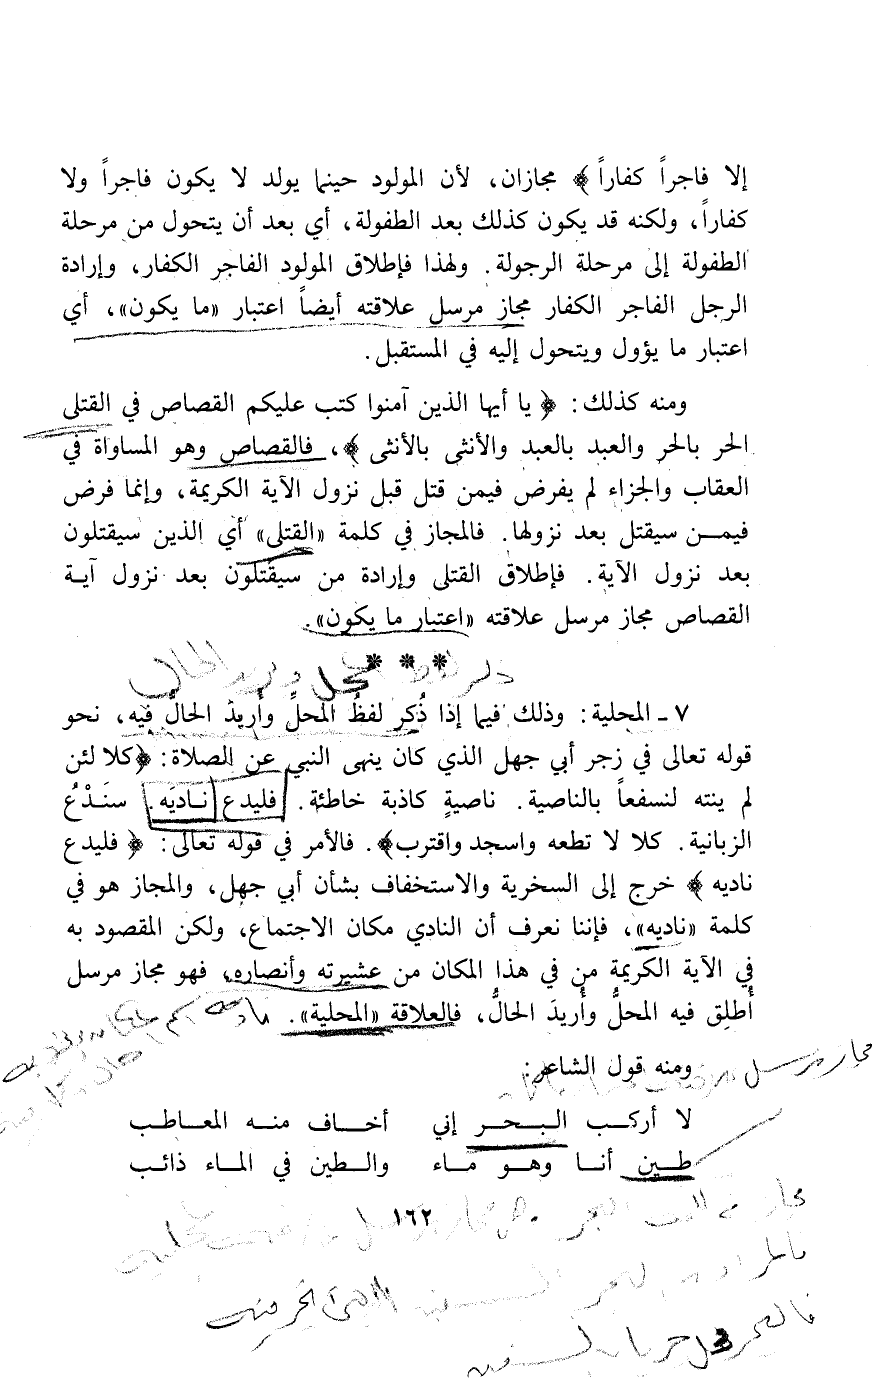 إلا فاجراً كفاراً ﴾ مجازان، لأن المولود حينما يولد لا يكون فاجراً ولا
كفاراً، ولكنه قد يكون كذلك بعد الطفولة، أي بعد أن يتحول من مرحلة
الطفولة إلى مرحلة الرجولة. ولهذا فإطلاق المولود الفاجر الكفار، وإرادة
الرجل الفاجر الكفار مجاز مرسل علاقته أيضاً اعتبار «ما يكون»، أي
اعتبار ما يؤول ويتحول إليه في المستقبل.
ومنه كذلك: ﴿ يا أيها الذين آمنوا كتب عليكم القصاص في القتلى
الحر بالحر والعبد بالعبد والأنثى بالأنثى ﴾، فالقصاص وهو المساواة في
العقاب والجزاء لم يفرض فيمن قتل قبل نزول الآية الكريمة، وإنما فرض
فيمن سيقتل بعد نزولها. فالمجاز في كلمة «القتلى» أي الذين سيقتلون
بعد نزول الآية. فإطلاق القتلى وإرادة من سيقتلون بعد نزول آية
القصاص مجاز مرسل علاقته «اعتبار ما يكون».
* * *
المحل ويريد الحال
٧ ـ المحلية: وذلك فيما إذا ذُكِر لفظُ المحلِّ وأُريدَ الحالُّ فيه، نحو
قوله تعالى في زجر أبي جهل الذي كان ينهى النبي عن الصلاة: ﴿كلا لئن
لم ينته لنسفعاً بالناصية. ناصيةٍ كاذبة خاطئة. فليدع ناديَه. سنَدْعُ
الزبانية. كلا لا تطعه واسجد واقترب﴾. فالأمر في قوله تعالى: ﴿ فليدع
ناديه ﴾ خرج إلى السخرية والاستخفاف بشأن أبي جهل، والمجاز هو في
كلمة «ناديه»، فإننا نعرف أن النادي مكان الاجتماع، ولكن المقصود به
في الآية الكريمة من في هذا المكان من عشيرته وأنصاره، فهو مجاز مرسل
أُطلِق فيه المحلُّ وأُريدَ الحالُّ، فالعلاقة «المحلية».
مجاز مرسل
ومنه قول الشاعر:
لا أركب البحر إني أخاف منه المعاطب
طين أنا وهو ماء والطين في الماء ذائب
١٦٢